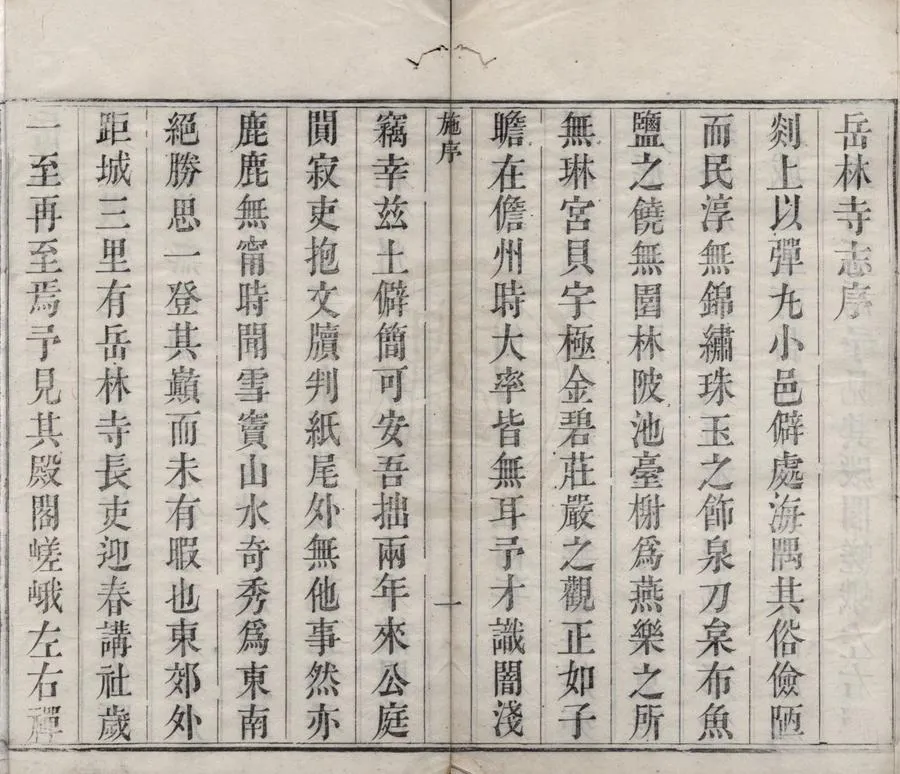 岳林寺志序
剡上以彈丸小邑僻處海隅其俗儉陋
而民淳無錦繡珠玉之飾泉刀枲布魚
鹽之饒無園林陂池臺榭爲燕樂之所
無琳宮貝宇極金碧莊嚴之觀正如子
瞻在儋州時大率皆無耳予才識闇淺
施序
一
竊幸茲土僻簡可安吾拙兩年來公庭
閴寂吏抱文牘判紙尾外無他事然亦
鹿鹿無甯時聞雪竇山水奇秀爲東南
絕勝思一登其巔而未有暇也東郊外
距城三里有岳林寺長吏迎春講社歲
一至再至焉予見其殿閣嵯峨左右禪